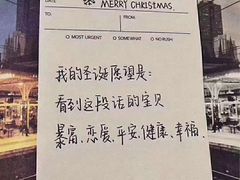 DATE MERRY CHRISTMAS.
TO: FROM:
MOST URGENT SOMEWHAT NO RUSH
我的圣诞愿望是:
看到这段话的宝贝
暴富、恋爱、平安、健康、幸福、